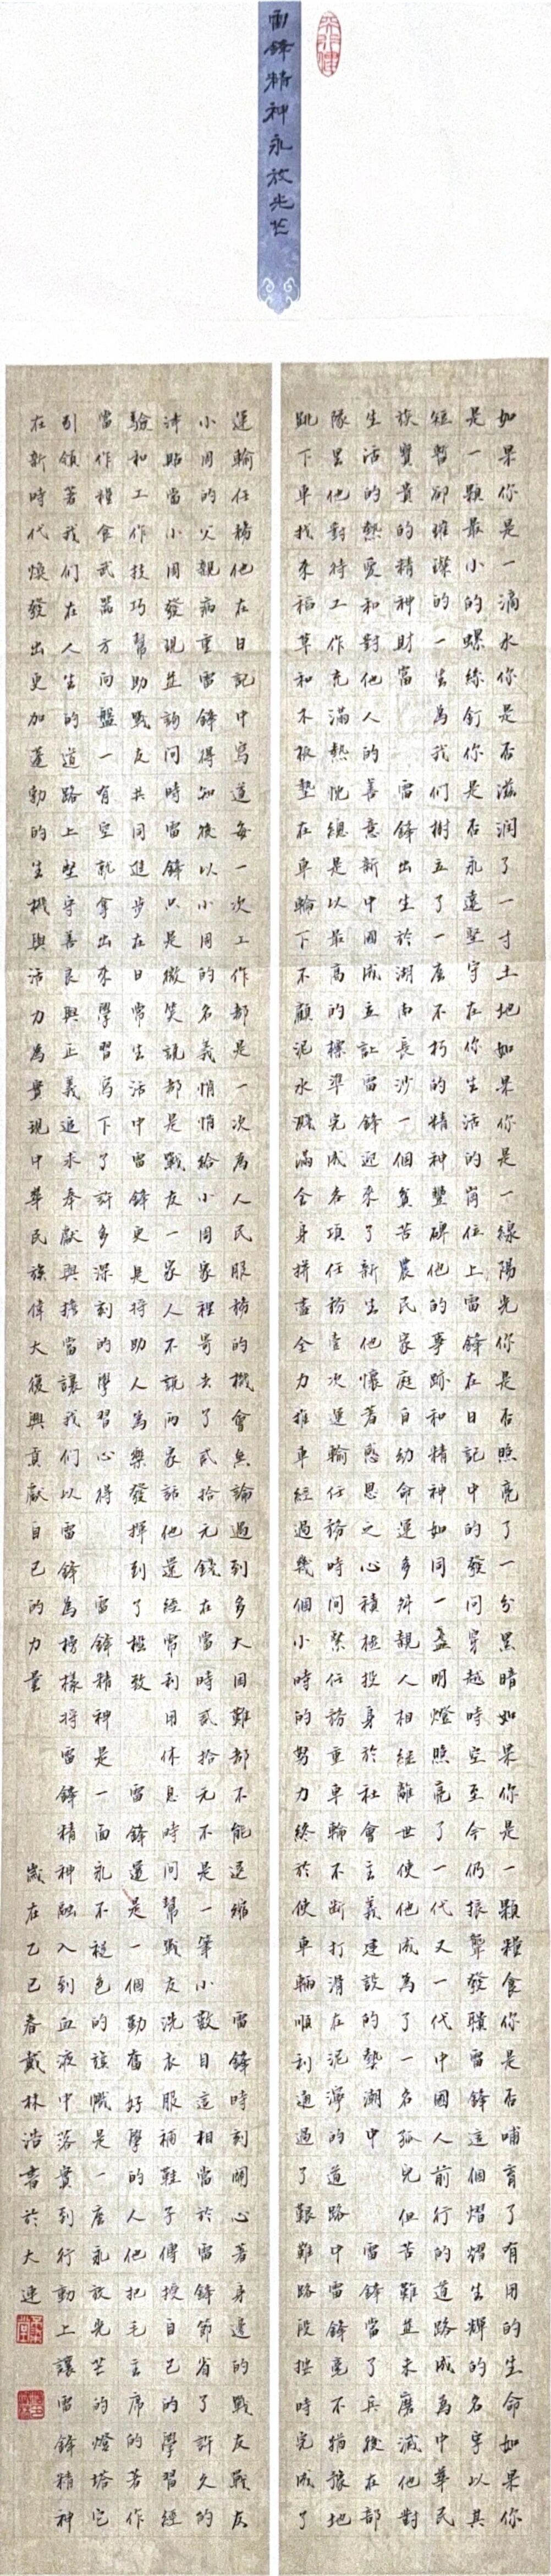 雷鋒精神永放光芒
天行健
如果你是一滴水你是否滋润了一寸土地如果你是一線陽光你是否照亮了一分黑暗如果你是一顆糧食你是否哺育了有用的生命如果你
是一顆最小的螺絲釘你是否永遠堅守在你生活的崗位上雷鋒在日記中的發問穿越時空至今仍振聾發聵雷鋒這個熠熠生輝的名字以其
短暫卻璀璨的一生為我們樹立了一座不朽的精神豐碑他的事跡和精神如同一盞明燈照亮了一代又一代中國人前行的道路成為中華民
族寶貴的精神財富 雷鋒出生於湖南長沙一個貧苦農民家庭自幼命運多舛親人相繼離世使他成為了一名孤兒但苦難並未磨滅他對
生活的熱愛和對他人的善意新中國成立讓雷鋒迎來了新生他懷著感恩之心積極投身於社會主義建設的熱潮中 雷鋒當了兵後在部
隊里他對待工作充滿熱忱總是以最高的標準完成各項任務壹次運輸任務時間緊任務重車輪不斷打滑在泥濘的道路中雷鋒毫不猶豫地
跳下車找來稻草和木板墊在車輪下不顧泥水濺滿全身拼盡全力推車經過幾個小時的努力終於使車輛順利通過了艱難路段按時完成了
運輸任務他在日記中寫道每一次工作都是一次為人民服務的機會無論遇到多大困難都不能退縮 雷鋒時刻關心著身邊的戰友戰友
小周的父親病重雷鋒得知後以小周的名義悄悄給小周家裡寄去了貳拾元錢在當時貳拾元不是一筆小數目這相當於雷鋒節省了許久的
津貼當小周發現並詢問時雷鋒只是微笑說都是戰友一家人不說兩家話他還經常利用休息時間幫戰友洗衣服補鞋子傳授自己的學習經
驗和工作技巧幫助戰友共同進步在日常生活中雷鋒更是將助人為樂發揮到了極致 雷鋒還是一個勤奮好學的人他把毛主席的著作
當作糧食武器方向盤一有空就拿出來學習寫下了許多深刻的學習心得 雷鋒精神是一面永不褪色的旗幟是一座永放光芒的燈塔它
引領著我們在人生的道路上堅守善良與正義追求奉獻與擔當讓我們以雷鋒為榜樣將雷鋒精神融入到血液中落實到行動上讓雷鋒精神
在新時代煥發出更加蓬勃的生機與活力為實現中華民族偉大復興貢獻自己的力量 歲在乙巳春戴林浩書於大連